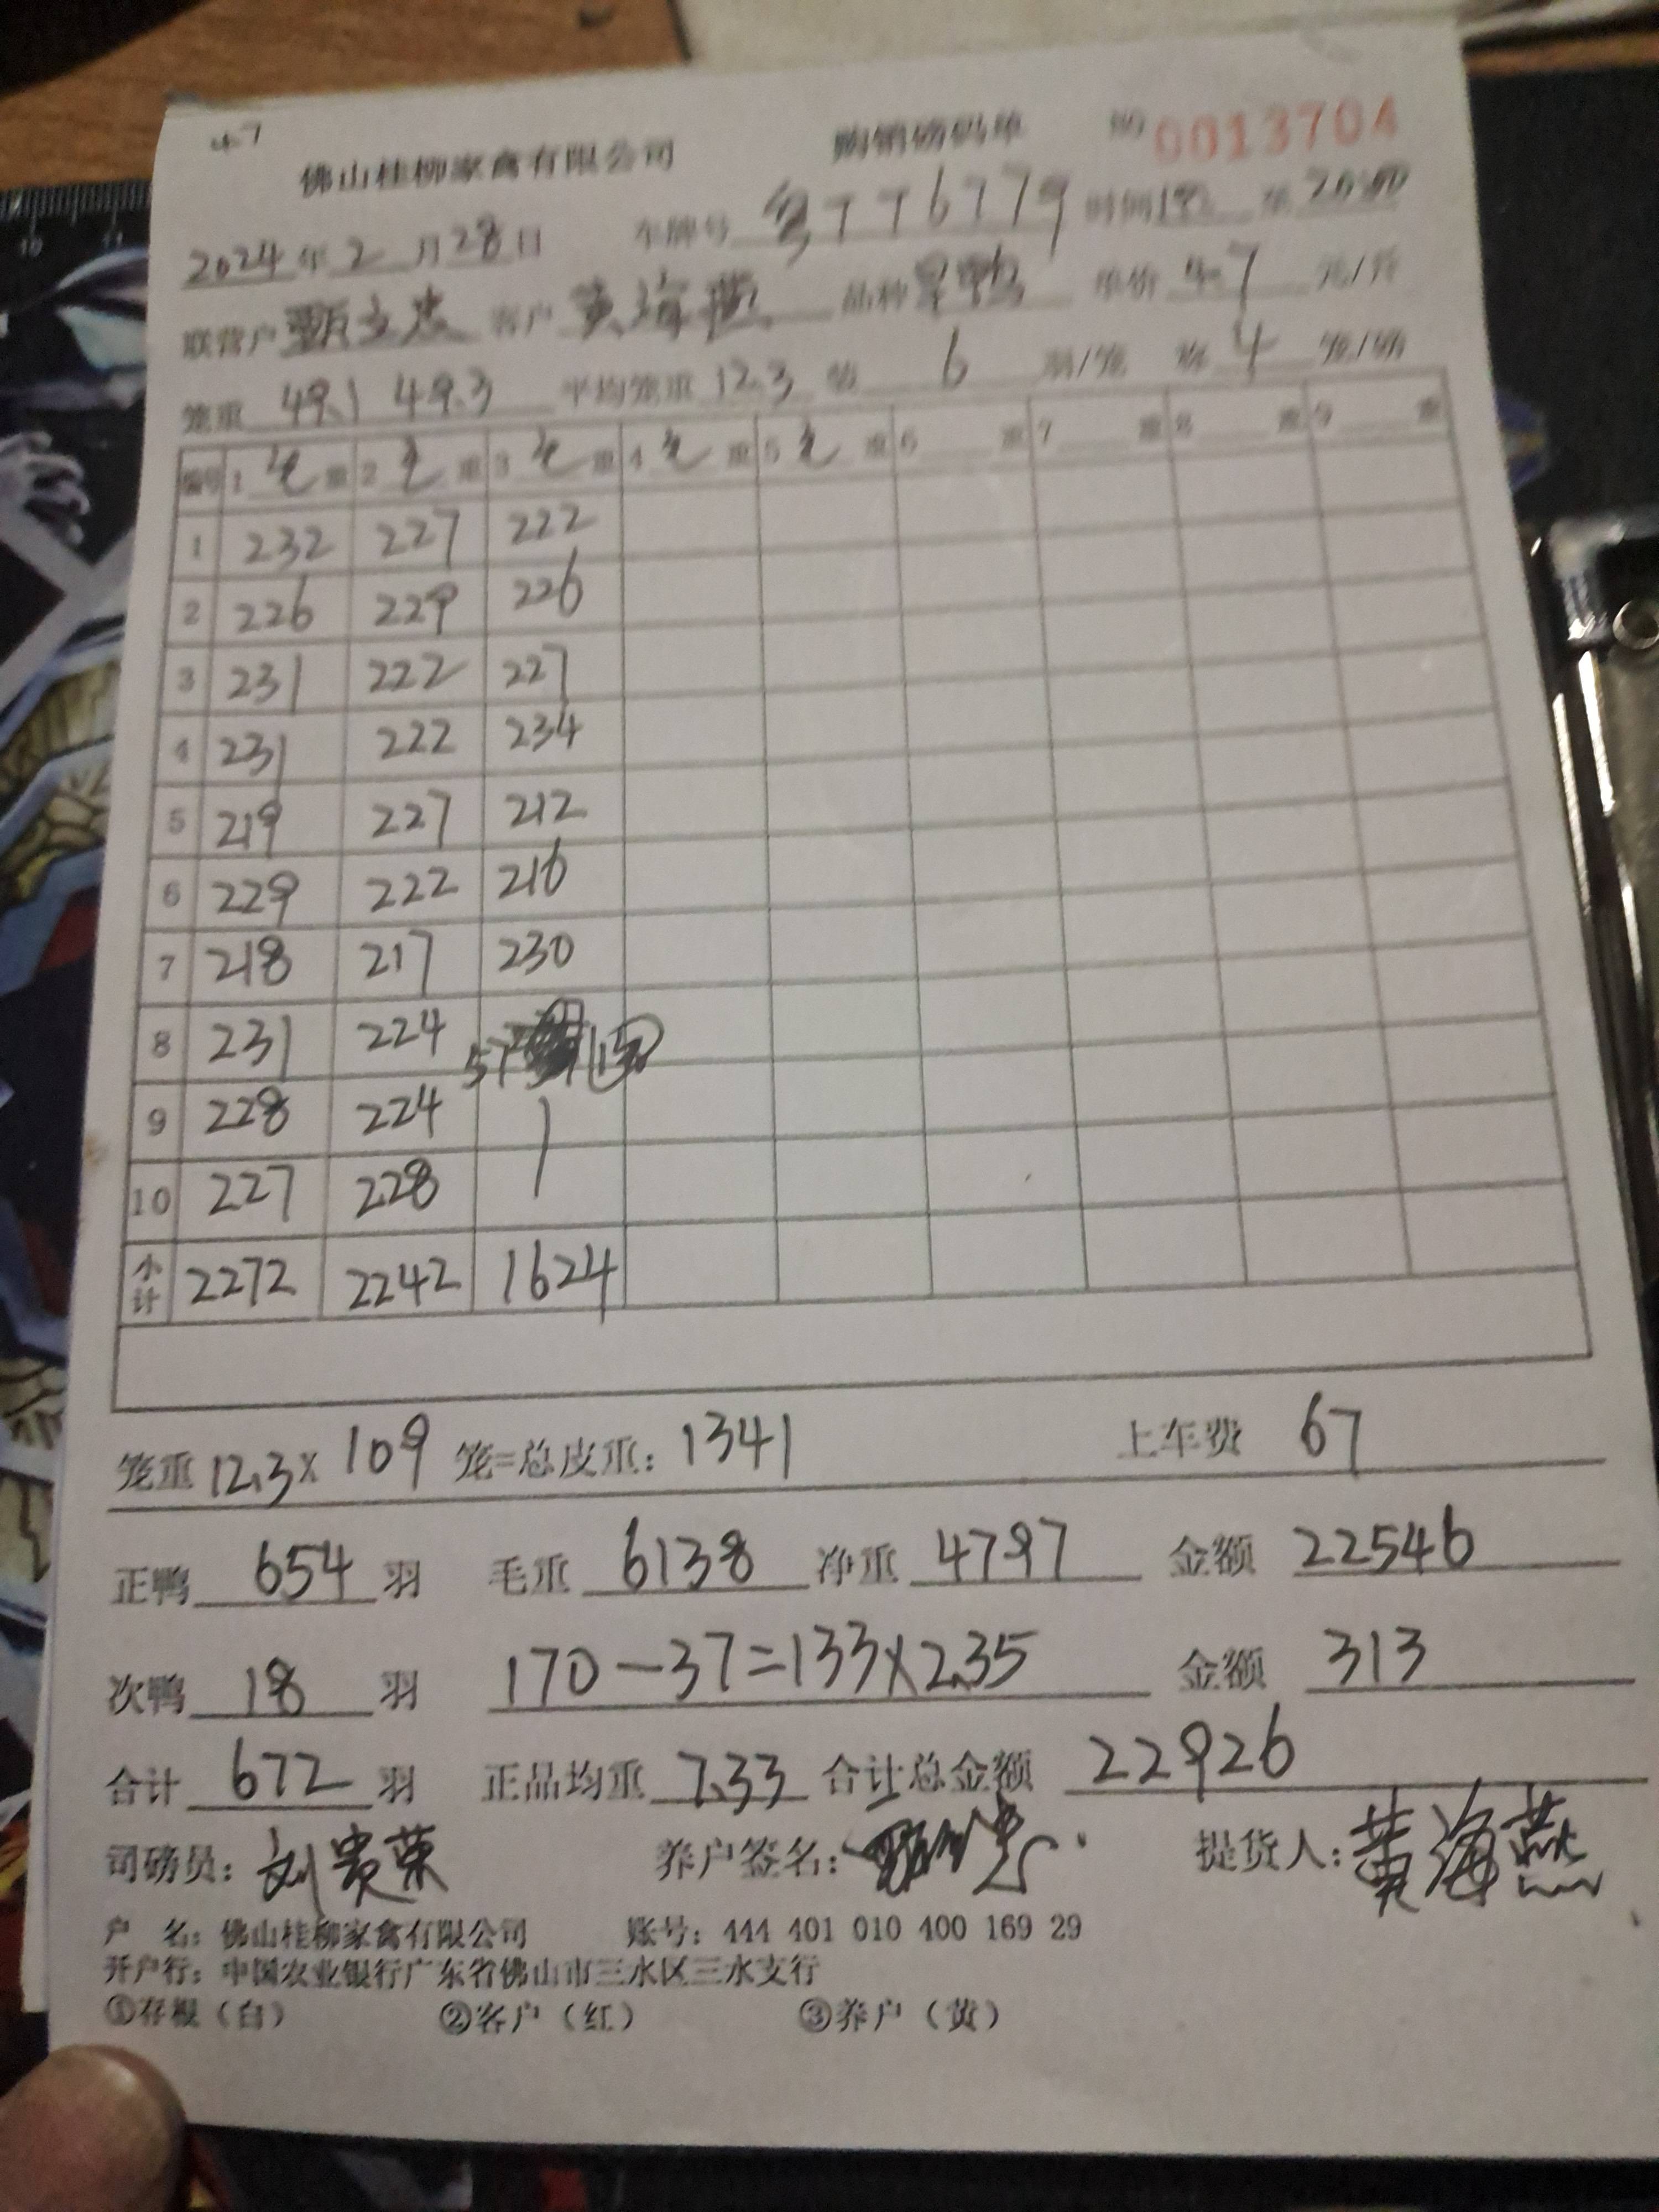 4.7
佛山桂柳家禽有限公司 购销磅码单 №0013704
2024年2月28日 车牌号 粤T76779 时间 至 20:00
联营户 甄立忠 客户 黄海燕 品种 单价 4.7 元/斤
笼重 49.1 49.3 平均笼重 12.3 装 6 羽/笼 称 4 笼/磅
编号 1 毛 重 2 毛 重 3 毛 重 4 毛 重 5 毛 重 6 重 7 重 8 重 9 重
1 232 227 222
2 226 229 226
3 231 222 227
4 231 222 234
5 219 227 212
6 229 222 216
7 218 217 230
8 231 224 57
9 228 224
10 227 228
小计 2272 2242 1624
笼重 12.3 × 109 笼=总皮重: 1341 上车费 67
正鸭 654 羽 毛重 6138 净重 4797 金额 22546
次鸭 18 羽 170-37=133×2.35 金额 313
合计 672 羽 正品均重 7.33 合计总金额 22926
司磅员: 刘贵荣 养户签名: 提货人: 黄海燕
户 名: 佛山桂柳家禽有限公司 账号: 444 401 010 400 169 29
开户行: 中国农业银行广东省佛山市三水区三水支行
①存根（白） ②客户（红） ③养户（黄）